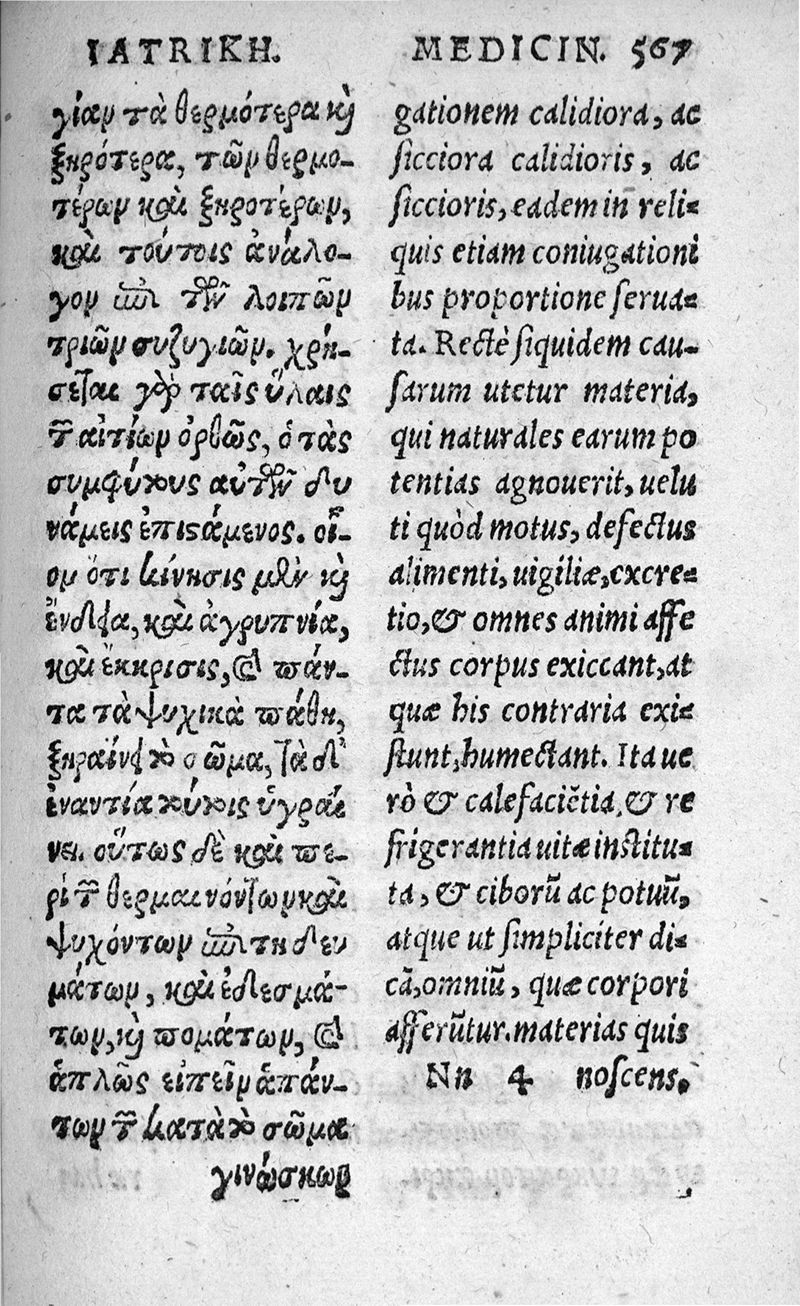 ΙΑΤΡΙΚΗ.
γίαν τὰ θερμότερα καὶ
ξηρότερα, τῶν θερμο-
τέρων καὶ ξηροτέρων,
καὶ τούτοις ἀνάλο-
γον ἐπὶ τῶν λοιπῶν
τριῶν συζυγιῶν. χρή-
σεται γὰρ ταῖς ὕλαις
τῶν αἰτίων ὀρθῶς, ὁ τὰς
συμφύτους αὐτῶν δυ
νάμεις ἐπιστάμενος. οἷ-
ον ὅτι κίνησις μὲν καὶ
ἔνδεια, καὶ ἀγρυπνία,
καὶ ἔκκρισις, καὶ πάν-
τα τὰ ψυχικὰ πάθη,
ξηραίνει τὸ σῶμα, τὰ δ'
ἐναντία τούτοις ὑγραί
νει. οὕτως δὲ καὶ πε-
ρὶ τῶν θερμαινόντων καὶ
ψυχόντων ἐπιτηδευ
μάτων, καὶ ἐδεσμά-
των, καὶ πομάτων, καὶ
ἁπλῶς εἰπεῖν ἁπάν-
των τῶν κατὰ τὸ σῶμα
γινώσκων
MEDICIN. 567
gationem calidiora, ac
ſicciora calidioris, ac
ſiccioris, eadem in reli-
quis etiam coniugationi
bus proportione ſerua-
ta. Rectè ſiquidem cau-
ſarum utetur materia,
qui naturales earum po
tentias agnouerit, uelu
ti quòd motus, defectus
alimenti, uigiliæ, excre-
tio, & omnes animi affe
ctus corpus exiccant, at
quæ his contraria exi-
ſtunt, humectant. Ita ue
rò & calefaciẽtia, & re
frigerantia uitæ inſtitu-
ta, & ciborũ ac potuũ,
atque ut ſimpliciter di-
cã, omniũ, quæ corpori
afferũtur. materias quis
Nn 4 noſcens,